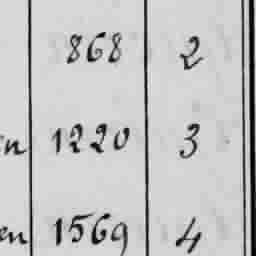 868 2
en 1220 3
en 1569 4